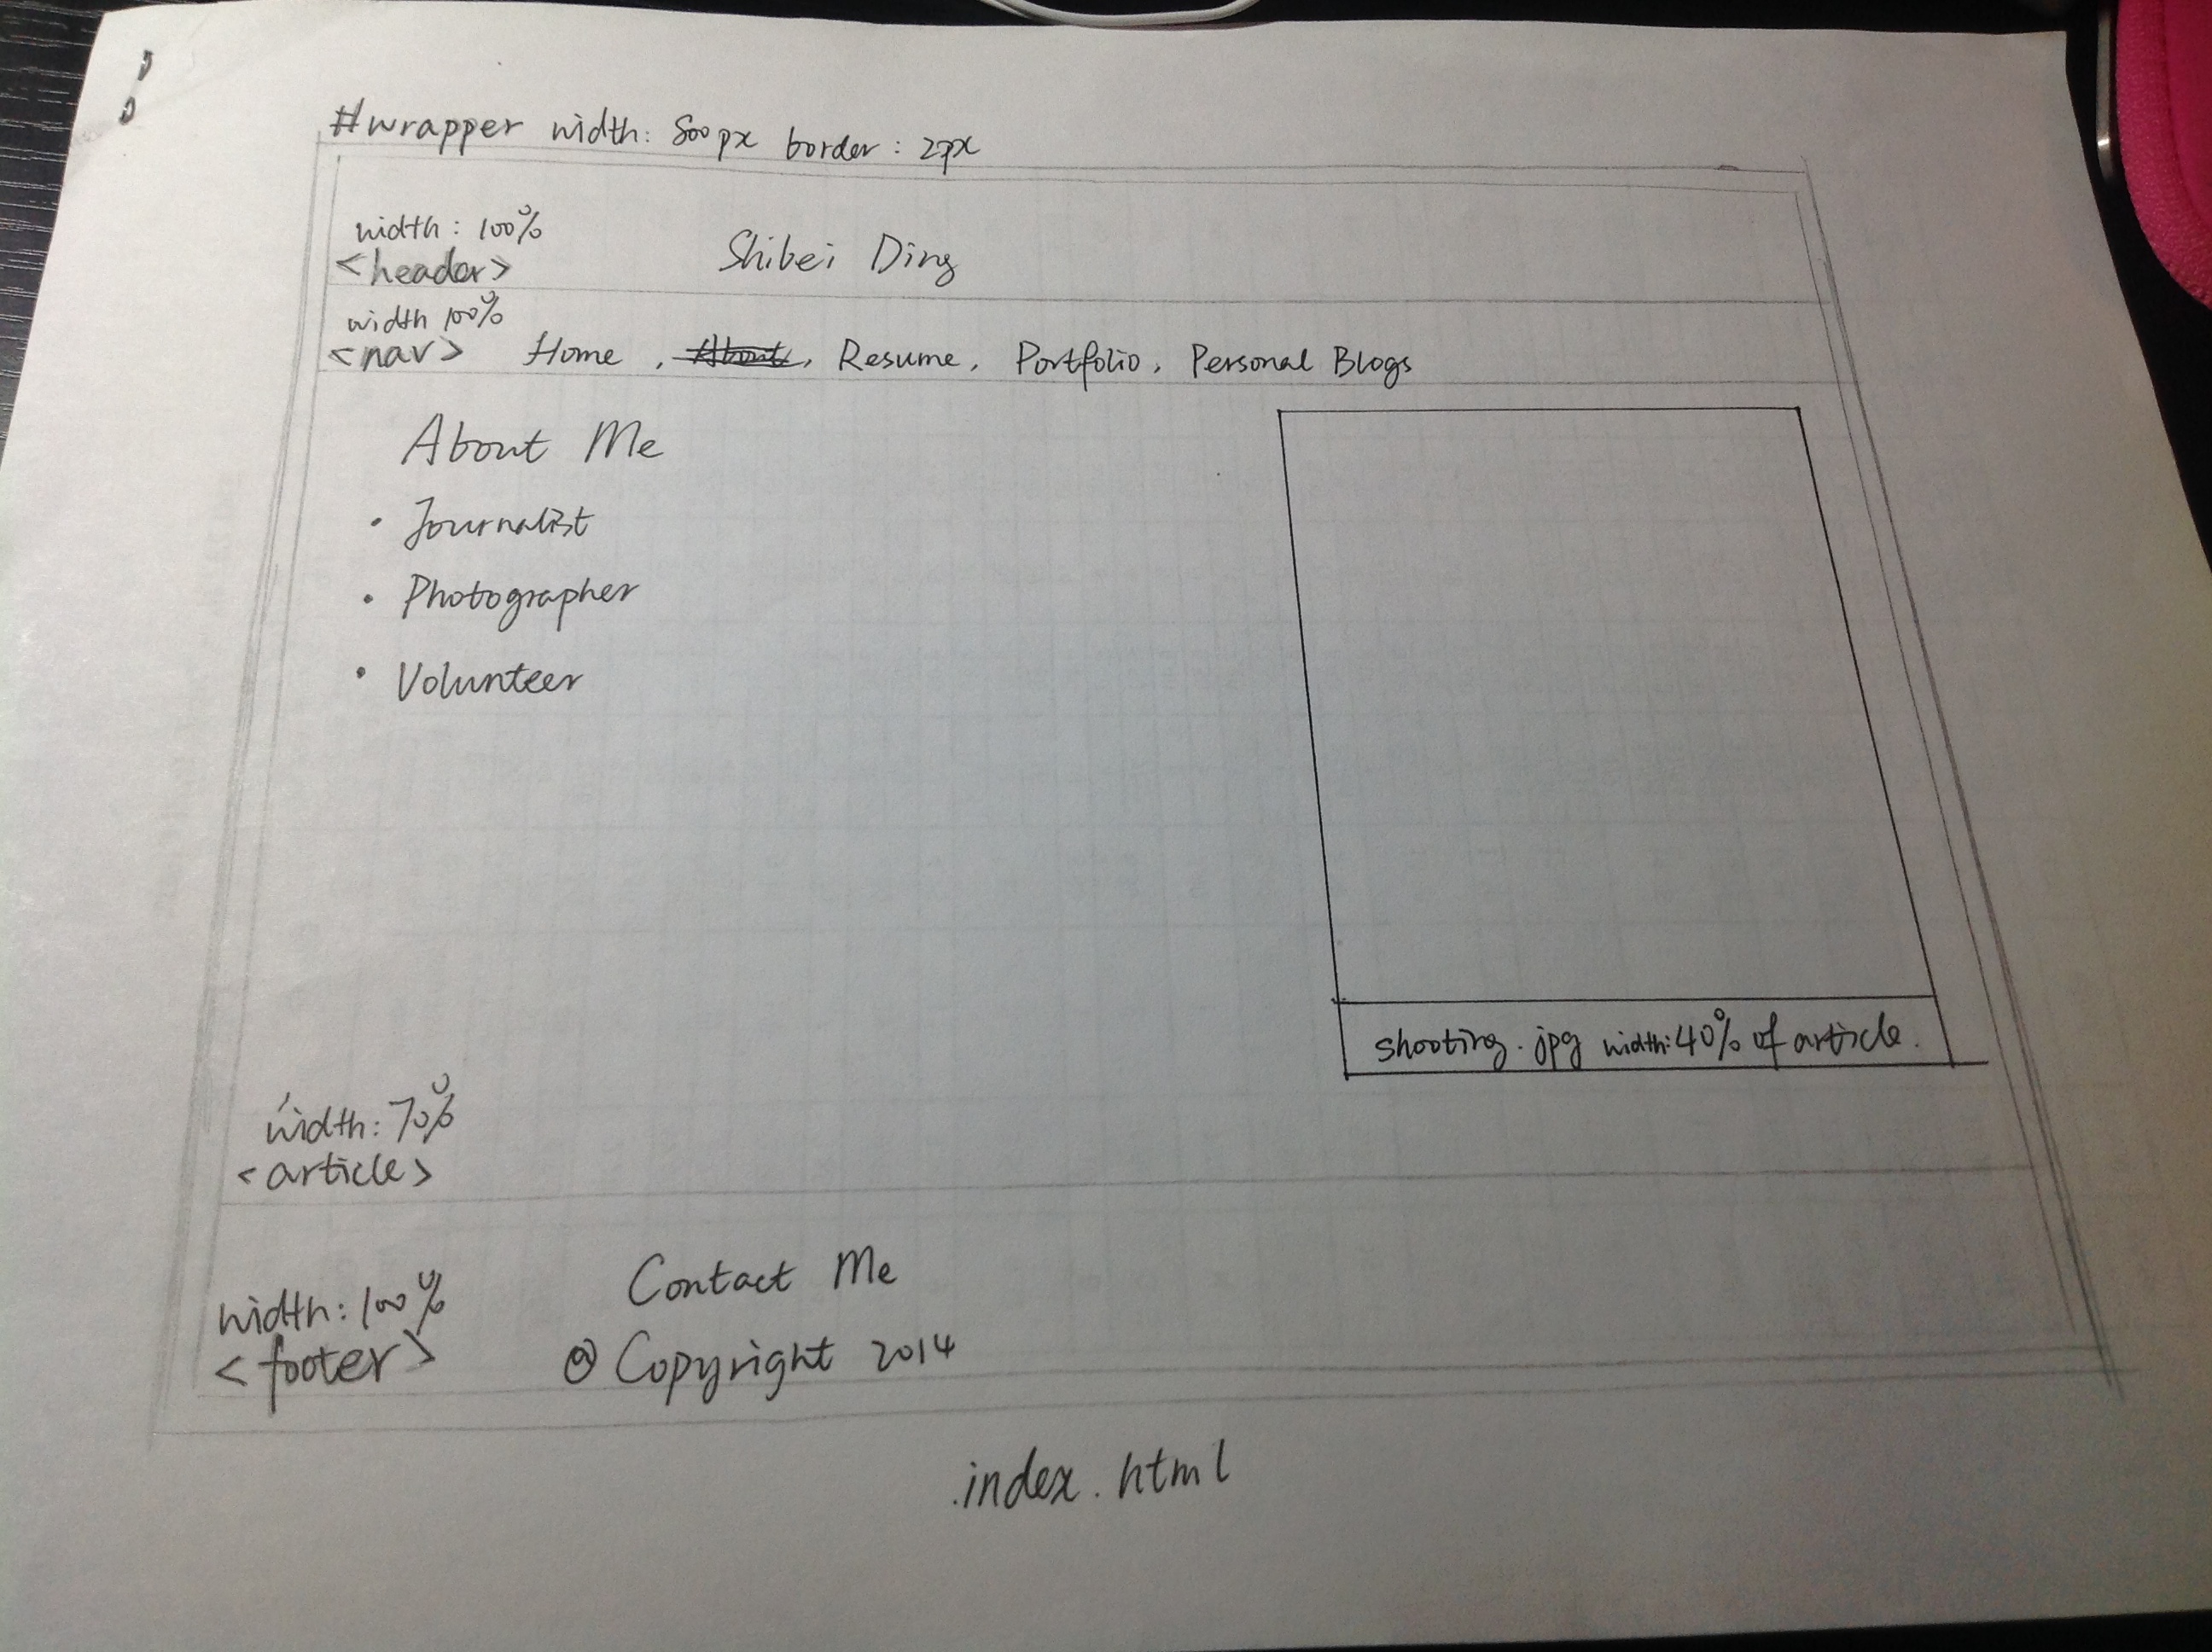 #wrapper width: 800px border: 2px
width: 100%
<header> Shibei Ding
width 100%
<nav> Home , About, Resume, Portfolio, Personal Blogs
About Me
• Journalist
• Photographer
• Volunteer
shooting.jpg width:40% of article.
width: 70%
<article>
Contact Me
width: 100%
<footer> @ Copyright 2014
.index.html